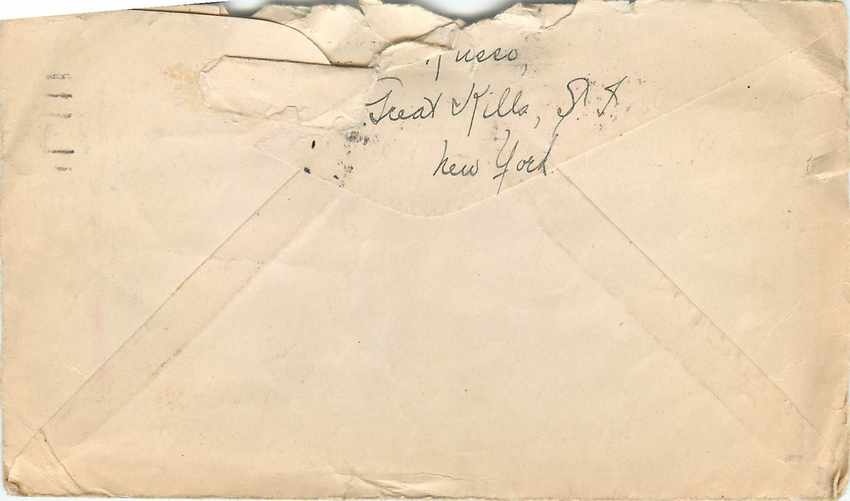 Russo,
Great Kills, S. I.
New York